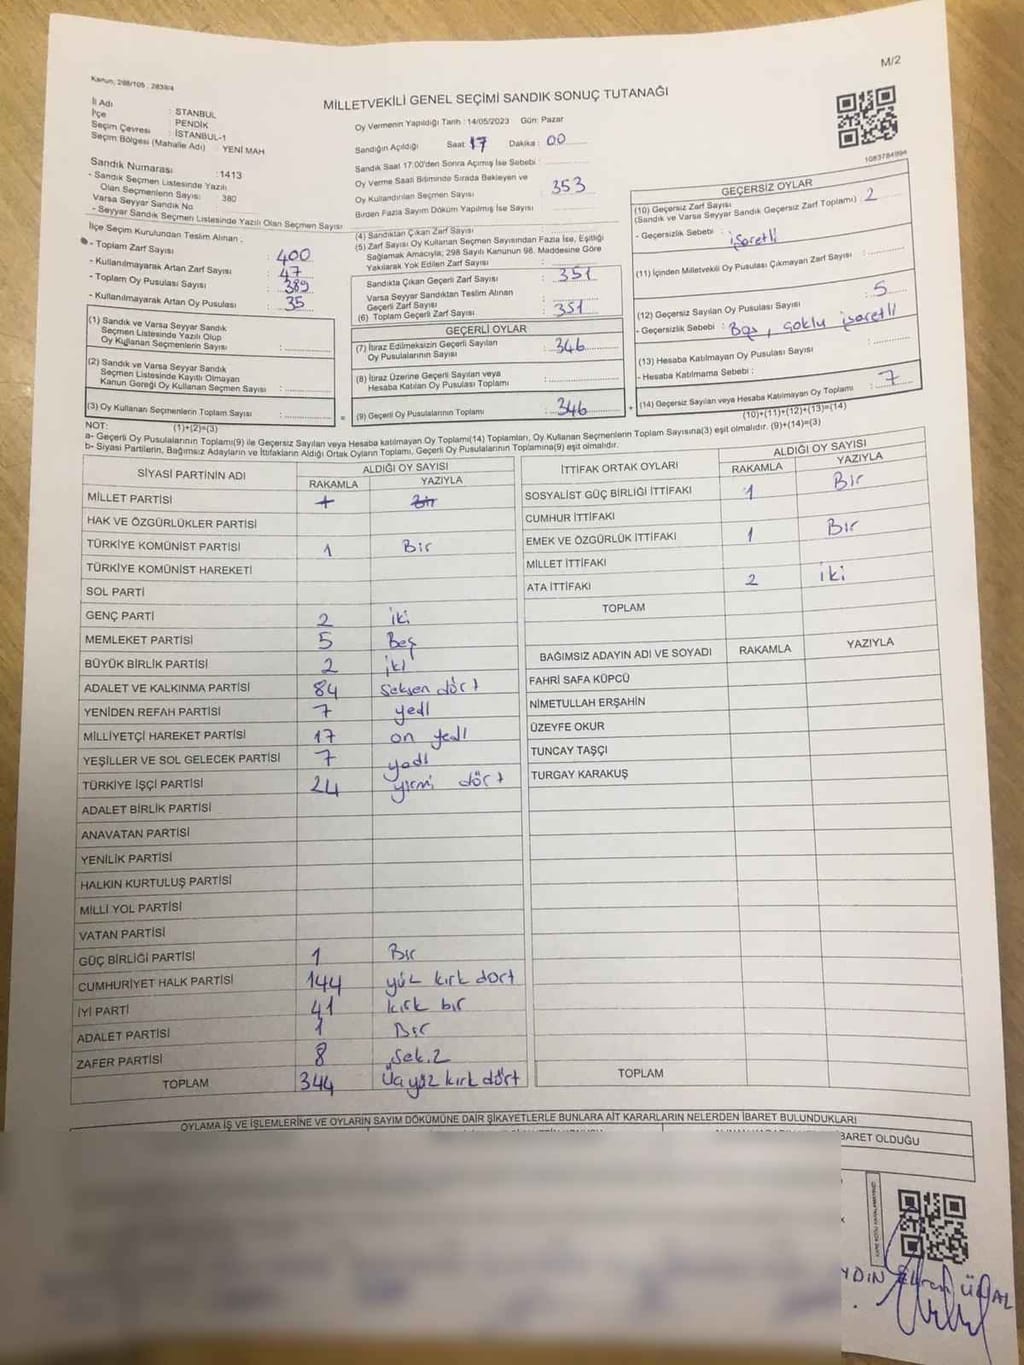 M/2
Kanun: 298/105 ; 2839/4
MİLLETVEKİLİ GENEL SEÇİMİ SANDIK SONUÇ TUTANAĞI
İl Adı : İSTANBUL
İlçe : PENDİK
Seçim Çevresi : İSTANBUL-1
Seçim Bölgesi (Mahalle Adı) : YENİ MAH
Sandık Numarası : 1413
- Sandık Seçmen Listesinde Yazılı
Olan Seçmenlerin Sayısı: 380
Varsa Seyyar Sandık No
- Seyyar Sandık Seçmen Listesinde Yazılı Olan Seçmen Sayısı
İlçe Seçim Kurulundan Teslim Alınan ;
- Toplam Zarf Sayısı : 400
- Kullanılmayarak Artan Zarf Sayısı : 47
- Toplam Oy Pusulası Sayısı : 389
- Kullanılmayarak Artan Oy Pusulası : 35
(1) Sandık ve Varsa Seyyar Sandık
Seçmen Listesinde Yazılı Olup
Oy Kullanan Seçmenlerin Sayısı :
(2) Sandık ve Varsa Seyyar Sandık
Seçmen Listesinde Kayıtlı Olmayan
Kanun Gereği Oy Kullanan Seçmen Sayısı :
(3) Oy Kullanan Seçmenlerin Toplam Sayısı :
(1)+(2)=(3)
Oy Vermenin Yapıldığı Tarih : 14/05/2023 Gün: Pazar
Sandığın Açıldığı Saat : 17 Dakika : 00
Sandık Saat 17:00'den Sonra Açılmış İse Sebebi :
Oy Verme Saati Bitiminde Sırada Bekleyen ve
Oy Kullandırılan Seçmen Sayısı : 353
Birden Fazla Sayım Döküm Yapılmış İse Sayısı :
(4) Sandıktan Çıkan Zarf Sayısı :
(5) Zarf Sayısı Oy Kullanan Seçmen Sayısından Fazla İse, Eşitliği
Sağlamak Amacıyla; 298 Sayılı Kanunun 98. Maddesine Göre
Yakılarak Yok Edilen Zarf Sayısı :
Sandıkta Çıkan Geçerli Zarf Sayısı : 351
Varsa Seyyar Sandıktan Teslim Alınan
Geçerli Zarf Sayısı :
(6) Toplam Geçerli Zarf Sayısı : 351
GEÇERLİ OYLAR
(7) İtiraz Edilmeksizin Geçerli Sayılan
Oy Pusulalarının Sayısı : 346
(8) İtiraz Üzerine Geçerli Sayılan veya
Hesaba Katılan Oy Pusulası Toplamı :
= (9) Geçerli Oy Pusulalarının Toplamı : 346 +
1083784994
GEÇERSİZ OYLAR
(10) Geçersiz Zarf Sayısı
(Sandık ve Varsa Seyyar Sandık Geçersiz Zarf Toplamı) : 2
- Geçersizlik Sebebi : işaretli
(11) İçinden Milletvekili Oy Pusulası Çıkmayan Zarf Sayısı :
(12) Geçersiz Sayılan Oy Pusulası Sayısı : 5
- Geçersizlik Sebebi : Boş, çoklu işaretli
(13) Hesaba Katılmayan Oy Pusulası Sayısı :
- Hesaba Katılmama Sebebi :
(14) Geçersiz Sayılan veya Hesaba Katılmayan Oy Toplamı : 7
(10)+(11)+(12)+(13)=(14)
NOT:
a- Geçerli Oy Pusulalarının Toplamı(9) ile Geçersiz Sayılan veya Hesaba katılmayan Oy Toplamı(14) Toplamları, Oy Kullanan Seçmenlerin Toplam Sayısına(3) eşit olmalıdır. (9)+(14)=(3)
b- Siyasi Partilerin, Bağımsız Adayların ve İttifakların Aldığı Ortak Oyların Toplamı, Geçerli Oy Pusulalarının Toplamına(9) eşit olmalıdır.
SİYASİ PARTİNİN ADI ALDIĞI OY SAYISI
RAKAMLA YAZIYLA
MİLLET PARTİSİ 1 Bir
HAK VE ÖZGÜRLÜKLER PARTİSİ
TÜRKİYE KOMÜNİST PARTİSİ 1 Bir
TÜRKİYE KOMÜNİST HAREKETİ
SOL PARTİ
GENÇ PARTİ 2 iki
MEMLEKET PARTİSİ 5 Beş
BÜYÜK BİRLİK PARTİSİ 2 iki
ADALET VE KALKINMA PARTİSİ 84 seksen dört
YENİDEN REFAH PARTİSİ 7 yedi
MİLLİYETÇİ HAREKET PARTİSİ 17 on yedi
YEŞİLLER VE SOL GELECEK PARTİSİ 7 yadi
TÜRKİYE İŞÇİ PARTİSİ 24 yirmi dört
ADALET BİRLİK PARTİSİ
ANAVATAN PARTİSİ
YENİLİK PARTİSİ
HALKIN KURTULUŞ PARTİSİ
MİLLİ YOL PARTİSİ
VATAN PARTİSİ
GÜÇ BİRLİĞİ PARTİSİ 1 Bir
CUMHURİYET HALK PARTİSİ 144 yüz kırk dört
İYİ PARTİ 41 kırk bir
ADALET PARTİSİ 1 Bir
ZAFER PARTİSİ 8 Sekiz
TOPLAM 344 Üç yüz kırk dört
İTTİFAK ORTAK OYLARI ALDIĞI OY SAYISI
RAKAMLA YAZIYLA
SOSYALİST GÜÇ BİRLİĞİ İTTİFAKI 1 Bir
CUMHUR İTTİFAKI
EMEK VE ÖZGÜRLÜK İTTİFAKI 1 Bir
MİLLET İTTİFAKI
ATA İTTİFAKI 2 iki
TOPLAM
BAĞIMSIZ ADAYIN ADI VE SOYADI RAKAMLA YAZIYLA
FAHRİ SAFA KÜPCÜ
NİMETULLAH ERŞAHİN
ÜZEYFE OKUR
TUNCAY TAŞÇI
TURGAY KARAKUŞ
TOPLAM
OYLAMA İŞ VE İŞLEMLERİNE VE OYLARIN SAYIM DÖKÜMÜNE DAİR ŞİKAYETLERLE BUNLARA AİT KARARLARIN NELERDEN İBARET BULUNDUKLARI
BARET OLDUĞU